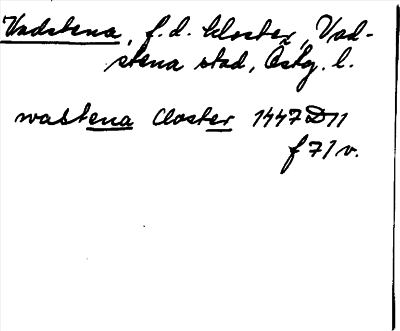 Vadstena, f.d. kloster, Vad-
stena stad, Östg. l.
wastena Closter 1447 D 11
f 71 v.